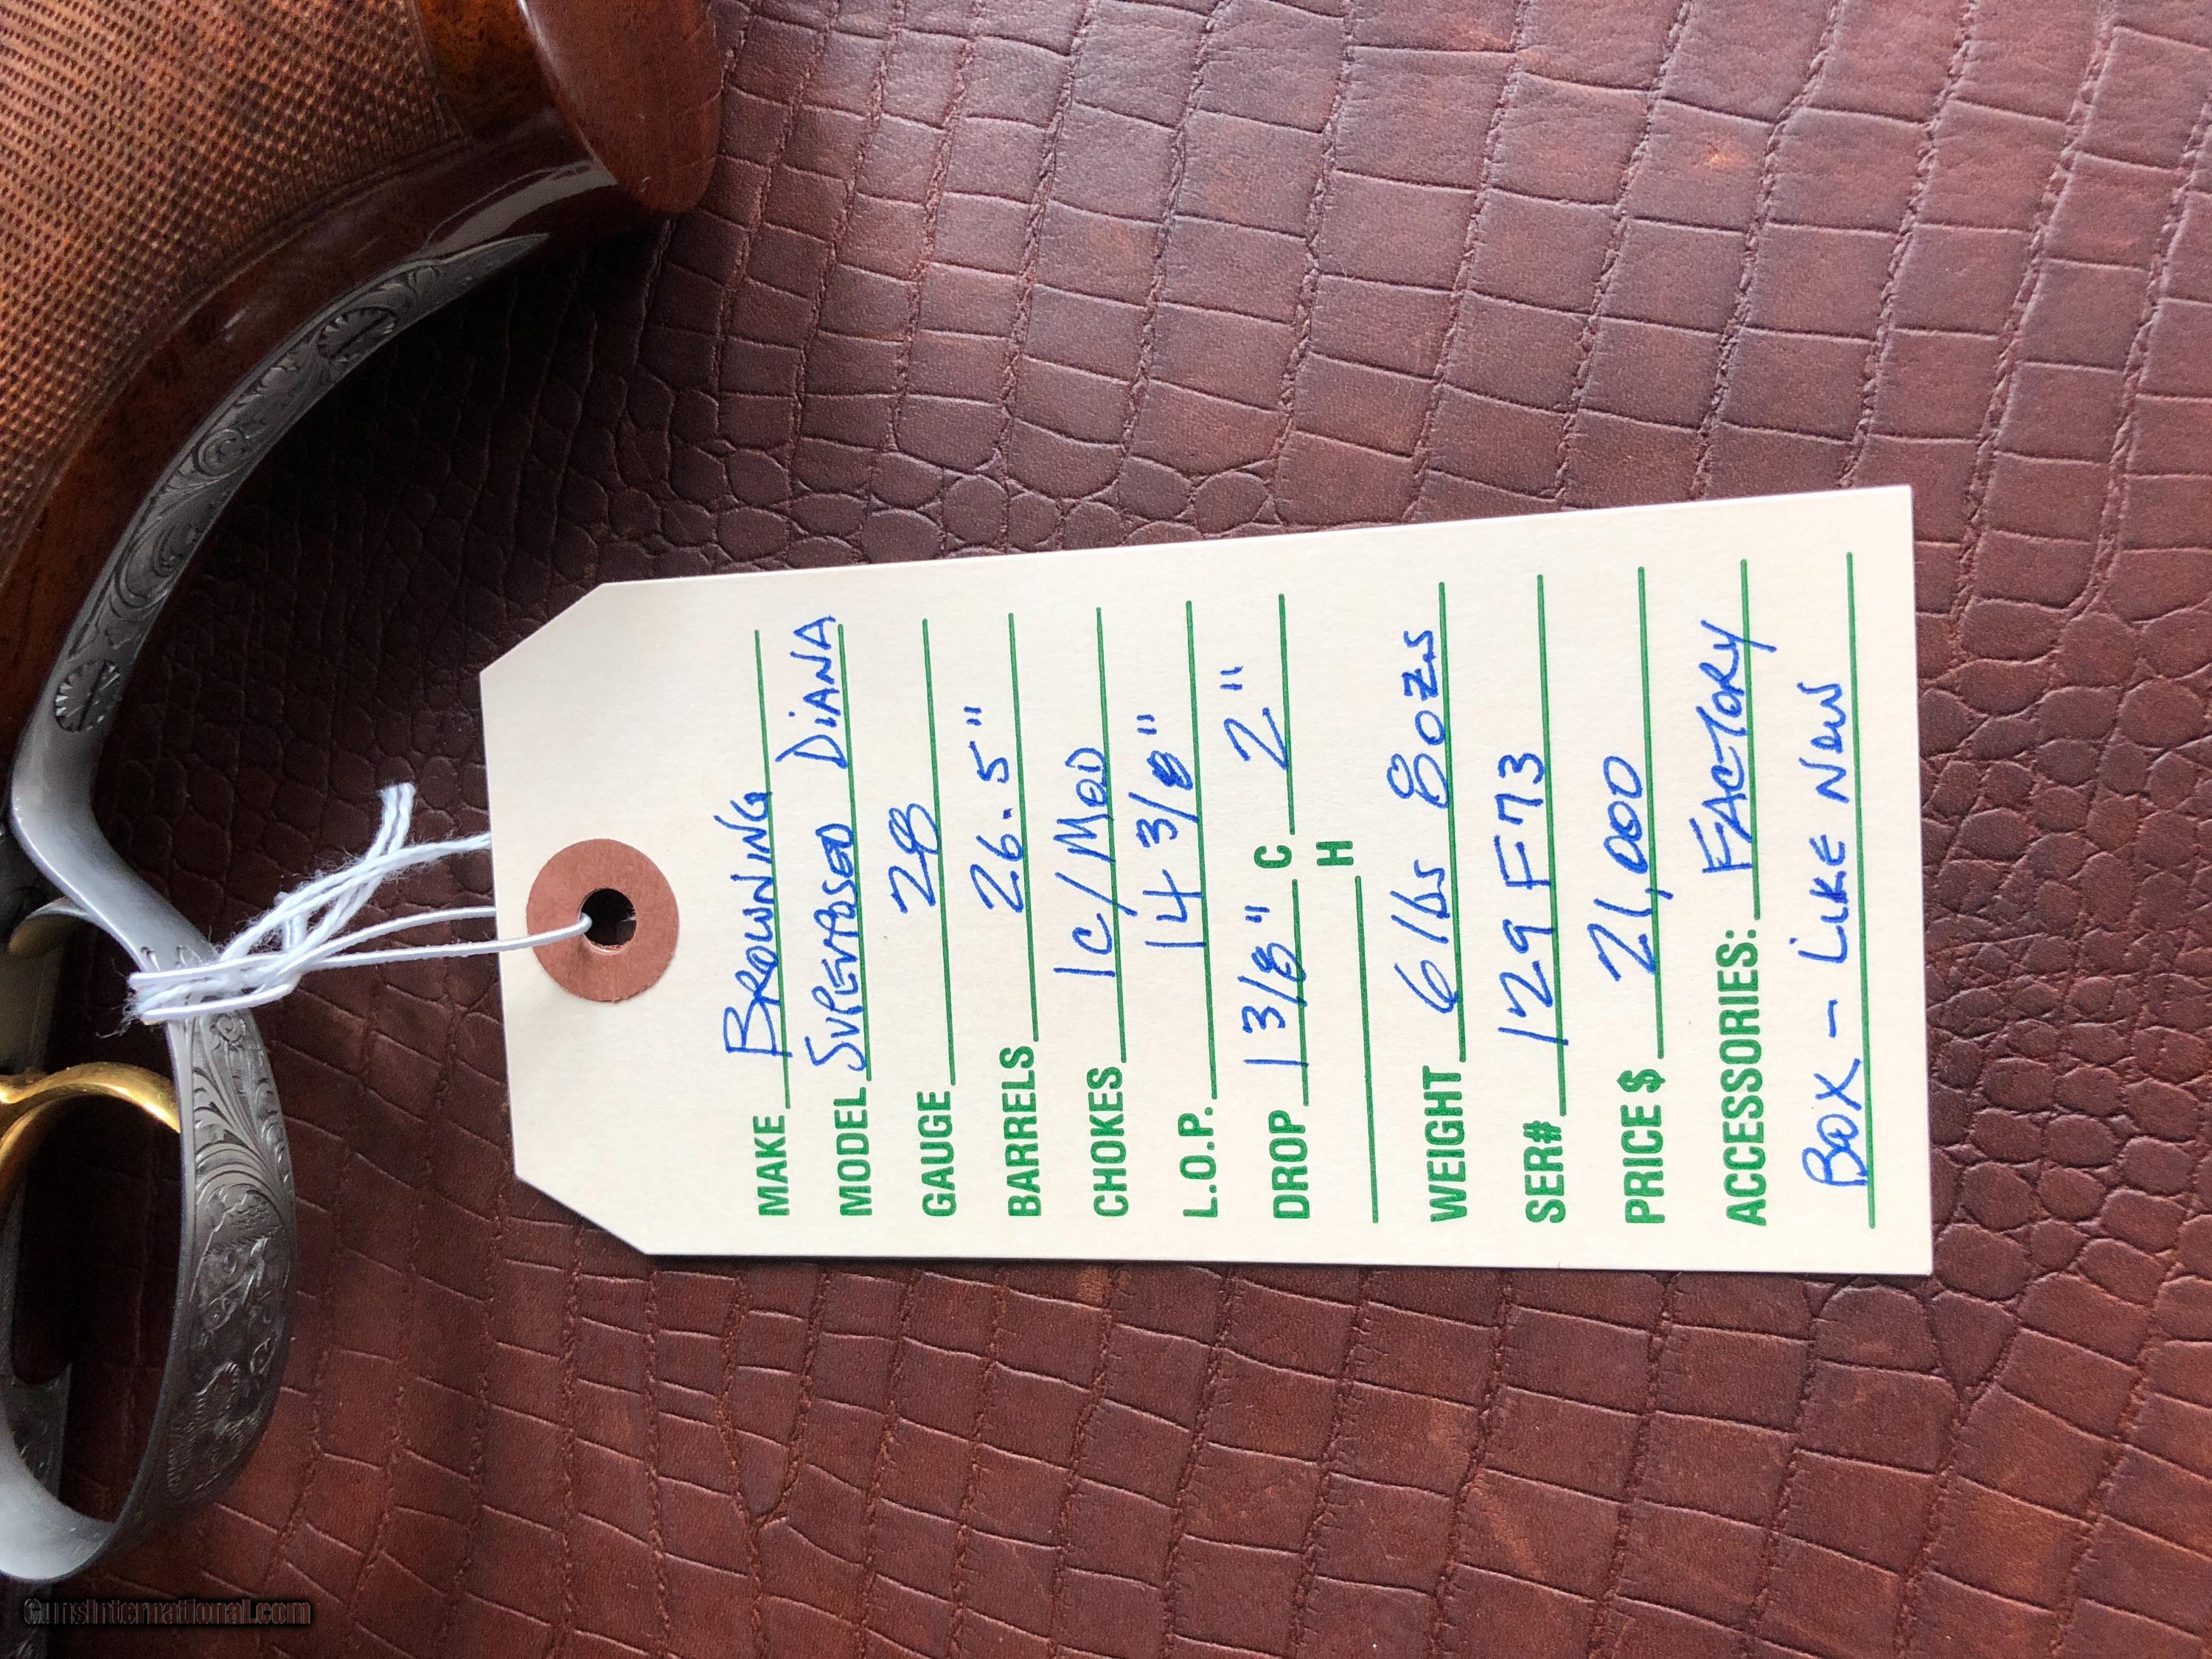 MAKE BROWNING
MODEL SUPERPOSED DIANA
GAUGE 28
BARRELS 26.5"
CHOKES IC/MOD
L.O.P. 14 3/8"
DROP 1 3/8" C 2"
H
WEIGHT 6 lbs 8 ozs
SER# 129 F73
PRICE $ 21,000
ACCESSORIES: FACTORY
BOX - LIKE NEW
GunsInternational.com